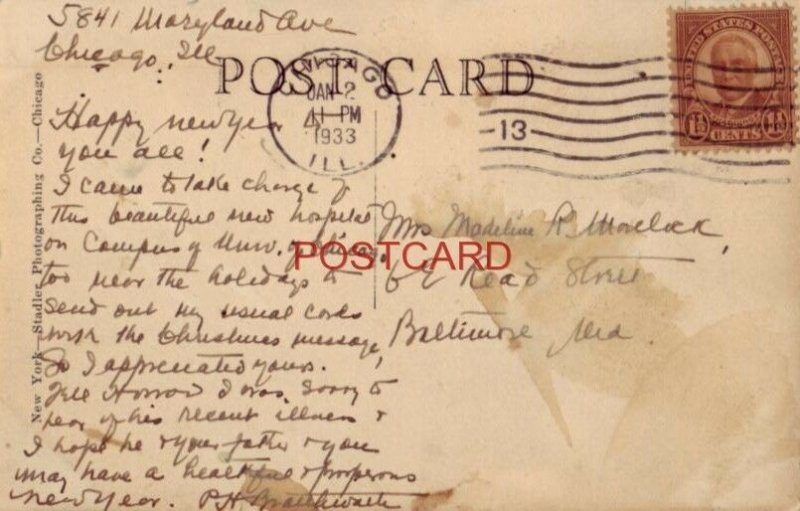 5841 Maryland Ave
Chicago, Ill
POST CARD
CHICAGO
JAN 2
11 PM
1933
ILL.
13
UNITED STATES POSTAGE
1½ CENTS 1½
Happy new year
you all!
I came to take charge of
this beautiful new hospital
on Campus of Univ. of Chicago,
too near the holidays to
send out my usual cards
with the Christmas message,
So I appreciated yours.
Tell I was sorry to
hear of his recent illness &
I hope he & your father & you
may have a healthful & prosperous
new year. P.H. Braithwaite
Mrs Madeline R.
64 Read Street
Baltimore Md.
POSTCARD
New York—Stadler Photographing Co.—Chicago